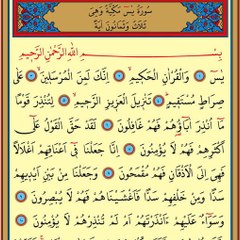 سُورَةُ يٰسٓ مَكِّيَّةٌ وَهِيَ
ثَلَاثٌ وَثَمَانُونَ اٰيَةً
بِسْمِ اللّٰهِ الرَّحْمٰنِ الرَّحِيمِ
يٰسٓ ﴿١﴾ وَالْقُرْاٰنِ الْحَكِيمِ ﴿٢﴾ اِنَّكَ لَمِنَ الْمُرْسَلِينَ ﴿٣﴾ عَلٰى
صِرَاطٍ مُسْتَقِيمٍ ﴿٤﴾ تَنْزِيلَ الْعَزِيزِ الرَّحِيمِ ﴿٥﴾ لِتُنْذِرَ قَوْمًا
مَا اُنْذِرَ اٰبَاؤُهُمْ فَهُمْ غَافِلُونَ ﴿٦﴾ لَقَدْ حَقَّ الْقَوْلُ عَلٰى
اَكْثَرِهِمْ فَهُمْ لَا يُؤْمِنُونَ ﴿٧﴾ اِنَّا جَعَلْنَا فِى اَعْنَاقِهِمْ اَغْلَالًا
فَهِىَ اِلَى الْاَذْقَانِ فَهُمْ مُقْمَحُونَ ﴿٨﴾ وَجَعَلْنَا مِنْ بَيْنِ اَيْدِيهِمْ
سَدًّا وَمِنْ خَلْفِهِمْ سَدًّا فَاَغْشَيْنَاهُمْ فَهُمْ لَا يُبْصِرُونَ ﴿٩﴾
وَسَوَاءٌ عَلَيْهِمْ ءَاَنْذَرْتَهُمْ اَمْ لَمْ تُنْذِرْهُمْ لَا يُؤْمِنُونَ ﴿١٠﴾